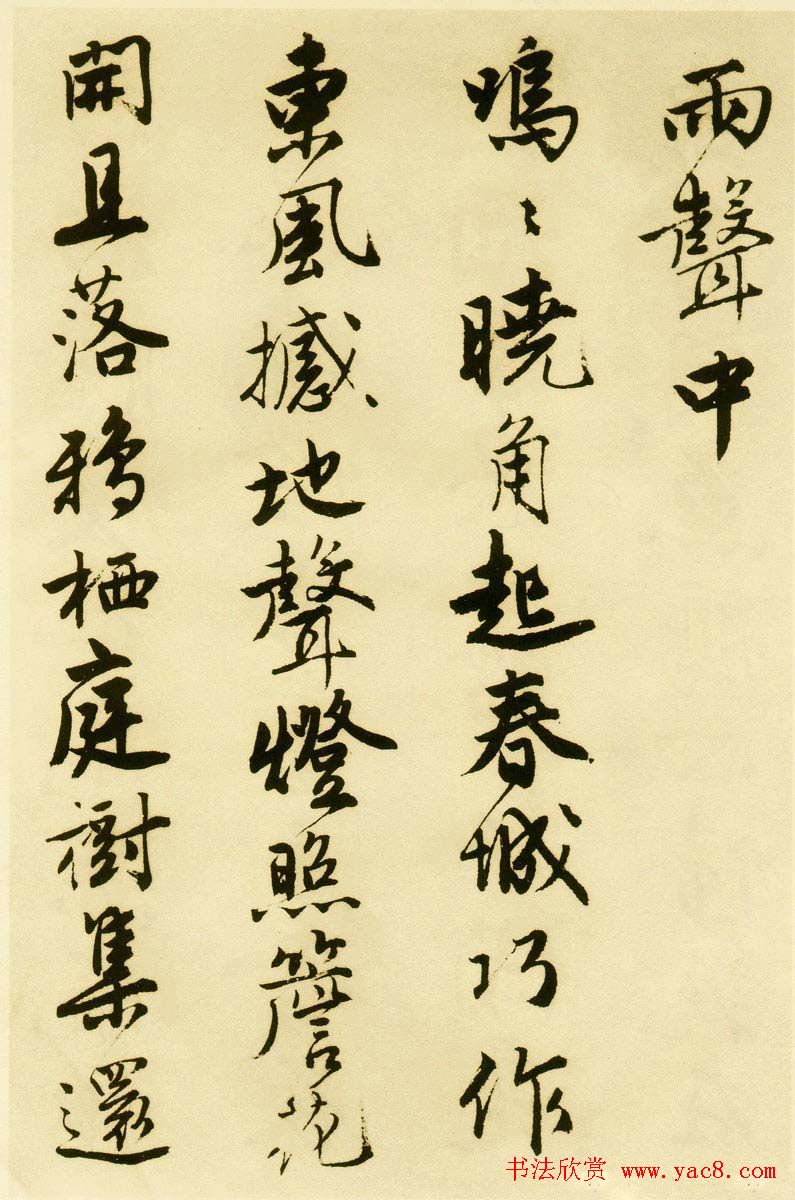 雨聲中
嗚〻曉角起春城巧作
東風撼地聲燈照簷花
開且落鴉栖庭樹集還
书法欣赏 www.yac8.com